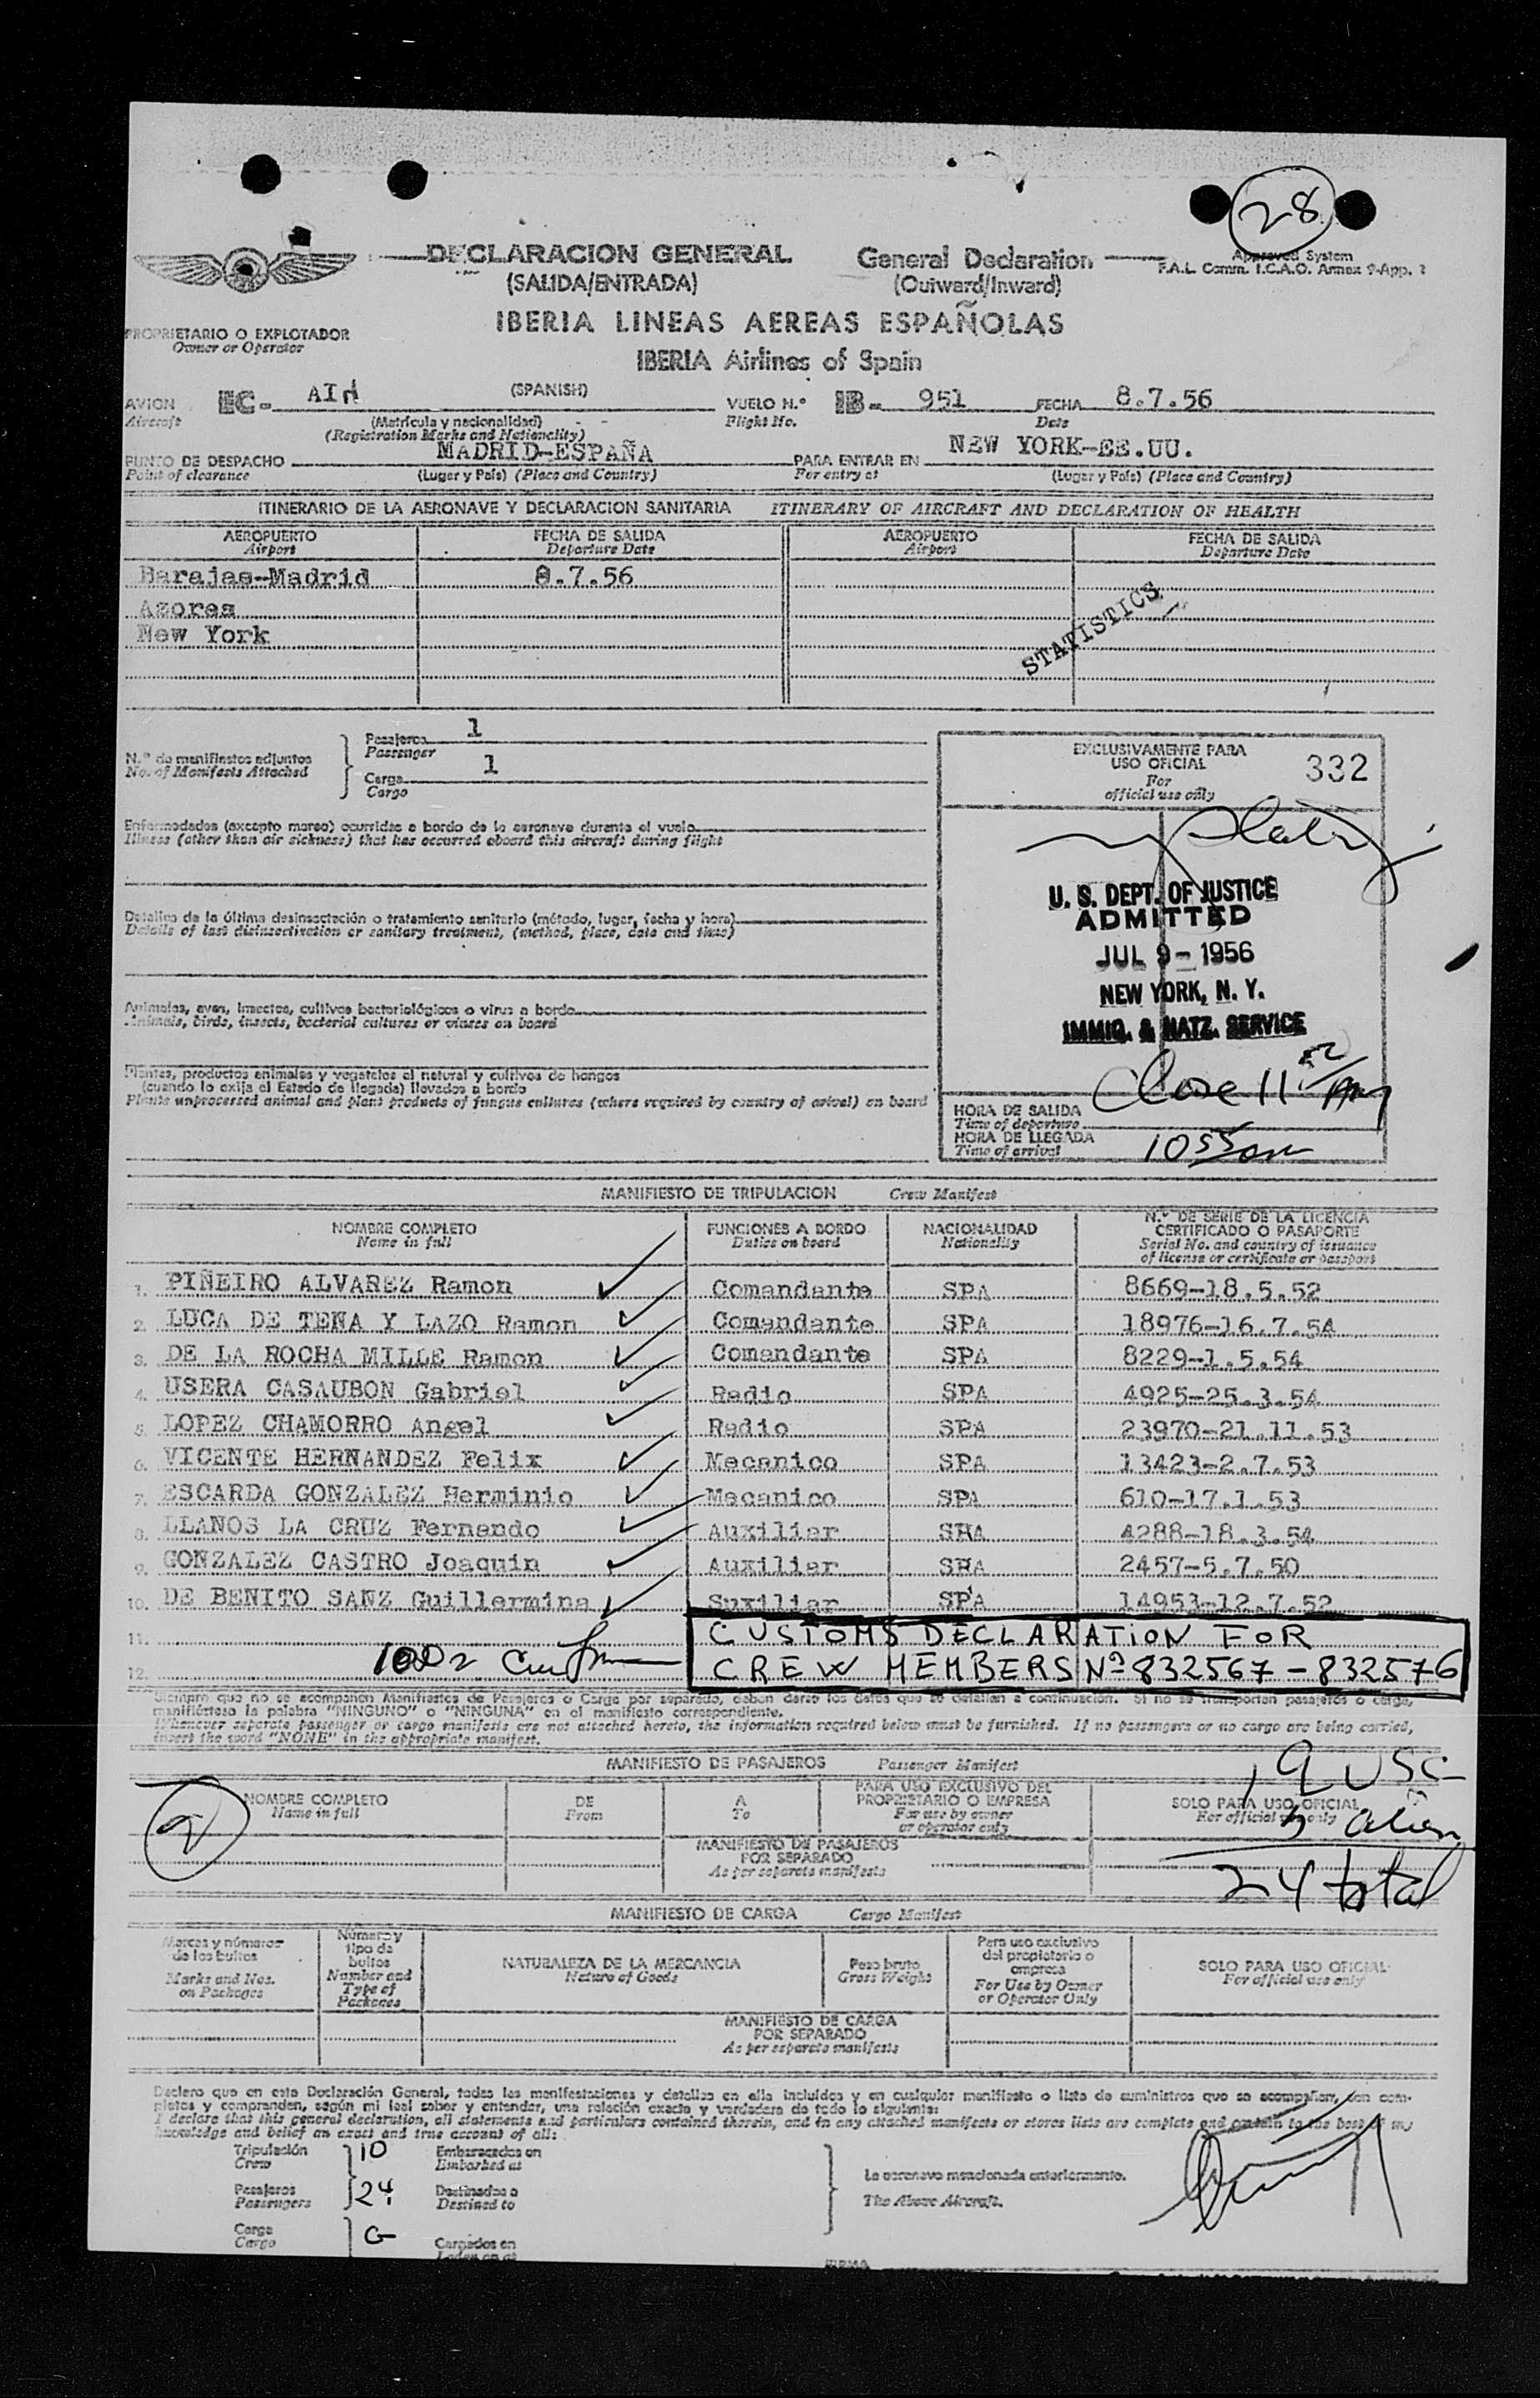 28
DECLARACION GENERAL General Declaration Approved System
(SALIDA/ENTRADA) (Outward/Inward) F.A.L. Comm. I.C.A.O. Annex 9-App.
IBERIA LINEAS AEREAS ESPAÑOLAS
PROPRIETARIO O EXPLOTADOR
Owner or Operator
IBERIA Airlines of Spain
AVION EC- (SPANISH) VUELO N.º IB- 951 FECHA 8.7.56
Aircraft (Matrícula y nacionalidad) Flight No. Date
(Registration Marks and Nationality)
PUNTO DE DESPACHO MADRID-ESPAÑA PARA ENTRAR EN NEW YORK-EE.UU.
Point of clearance (Lugar y País) (Place and Country) For entry at (Lugar y País) (Place and Country)
ITINERARIO DE LA AERONAVE Y DECLARACION SANITARIA ITINERARY OF AIRCRAFT AND DECLARATION OF HEALTH
AEROPUERTO FECHA DE SALIDA AEROPUERTO FECHA DE SALIDA
Airport Departure Date Airport Departure Date
Barajas-Madrid 8.7.56
Azores
New York
STATISTICS
N.º de manifiestos adjuntos
No. of Manifests Attached
Pasajeros 1
Passenger
Carga 1
Cargo
EXCLUSIVAMENTE PARA
USO OFICIAL 332
For
official use only
Enfermedades (excepto mareo) ocurridas a bordo de la aeronave durante el vuelo
Illness (other than air sickness) that has occurred aboard this aircraft during flight
Detalles de la última desinsectación o tratamiento sanitario (método, lugar, fecha y hora)
Details of last disinsectization or sanitary treatment, (method, place, date and time)
U. S. DEPT. OF JUSTICE
ADMITTED
JUL 9- 1956
NEW YORK, N. Y.
IMMIG. & NATZ. SERVICE
Animales, aves, insectos, cultivos bacteriológicos o virus a bordo
Animals, birds, insects, bacterial cultures or viruses on board
Plantas, productos animales y vegetales al natural y cultivos de hongos
(cuando lo exija el Estado de llegada) llevados a bordo
Plants unprocessed animal and plant products of fungus cultures (where required by country of arival) on board
Close 11
HORA DE SALIDA
Time of departure
HORA DE LLEGADA
Time of arrival 10 55
MANIFIESTO DE TRIPULACION Crew Manifest
NOMBRE COMPLETO FUNCIONES A BORDO NACIONALIDAD N.º DE SERIE DE LA LICENCIA
CERTIFICADO O PASAPORTE
Name in full Duties on board Nationality Serial No. and country of issuance
of license or certificate or passport
1. PIÑEIRO ALVAREZ Ramon Comandante SPA 8669-18.5.52
2. LUCA DE TENA Y LAZO Ramon Comandante SPA 18976-16.7.54
3. DE LA ROCHA MILLE Ramon Comandante SPA 8229-1.5.54
4. USERA CASAUBON Gabriel Radio SPA 4925-25.3.54
5. LOPEZ CHAMORRO Angel Radio SPA 23970-21.11.53
6. VICENTE HERNANDEZ Felix Mecanico SPA 13423-2.7.53
7. ESCARDA GONZALEZ Herminio Mecanico SPA 610-17.1.53
8. LLANOS LA CRUZ Fernando Auxiliar SHA 4288-18.3.54
9. GONZALEZ CASTRO Joaquin Auxiliar SHA 2457-5.7.50
10. DE BENITO SANZ Guillermina Suxiliar SPA 14953-12.7.52
11. CUSTOMS DECLARATION FOR
12. CREW MEMBERS Nº 832567-832576
Siempre que no se acompañen Manifiestos de Pasajeros o Carga por separado, deben darse los datos que se detallan a continuación. Si no se transportan pasajeros o carga,
manifiéstese la palabra "NINGUNO" o "NINGUNA" en el manifiesto correspondiente.
Whenever separate passenger or cargo manifests are not attached hereto, the information required below must be furnished. If no passengers or no cargo are being carried,
insert the word "NONE" in the appropriate manifest.
MANIFIESTO DE PASAJEROS Passenger Manifest
19 USC
NOMBRE COMPLETO DE A PARA USO EXCLUSIVO DEL
PROPRIETARIO O EMPRESA SOLO PARA USO OFICIAL
Name in full From To For use by owner
or operator only For official use only
alien
MANIFIESTO DE PASAJEROS
POR SEPARADO
As per separate manifests
24 total
MANIFIESTO DE CARGA Cargo Manifest
Marcas y números
de los bultos
Marks and Nos.
on Packages
Número y
tipo de
bultos
Number and
Type of
Packages
NATURALEZA DE LA MERCANCIA
Nature of Goods
Peso bruto
Gross Weight
Para uso exclusivo
del propietario o
empresa
For Use by Owner
or Operator Only
SOLO PARA USO OFICIAL
For official use only
MANIFIESTO DE CARGA
POR SEPARADO
As per separate manifests
Declaro que en esta Declaración General, todas las manifestaciones y detalles en ella incluídos y en cualquier manifiesto o lista de suministros que se acompañen, son com-
pletos y comprenden, según mi leal saber y entender, una relación exacta y verdadera de todo lo siguiente:
I declare that this general declaration, all statements and particulars contained therein, and in any attached manifests or stores lists are complete and contain to the best of my
knowledge and belief an exact and true account of all:
Tripulación 10 Embarcados en
Crew Embarked at
La aeronave mencionada anteriormente.
Pasajeros 24 Destinados a
Passengers Destined to
The Above Aircraft.
Carga G Cargados en
Cargo Laden on at
FIRMA